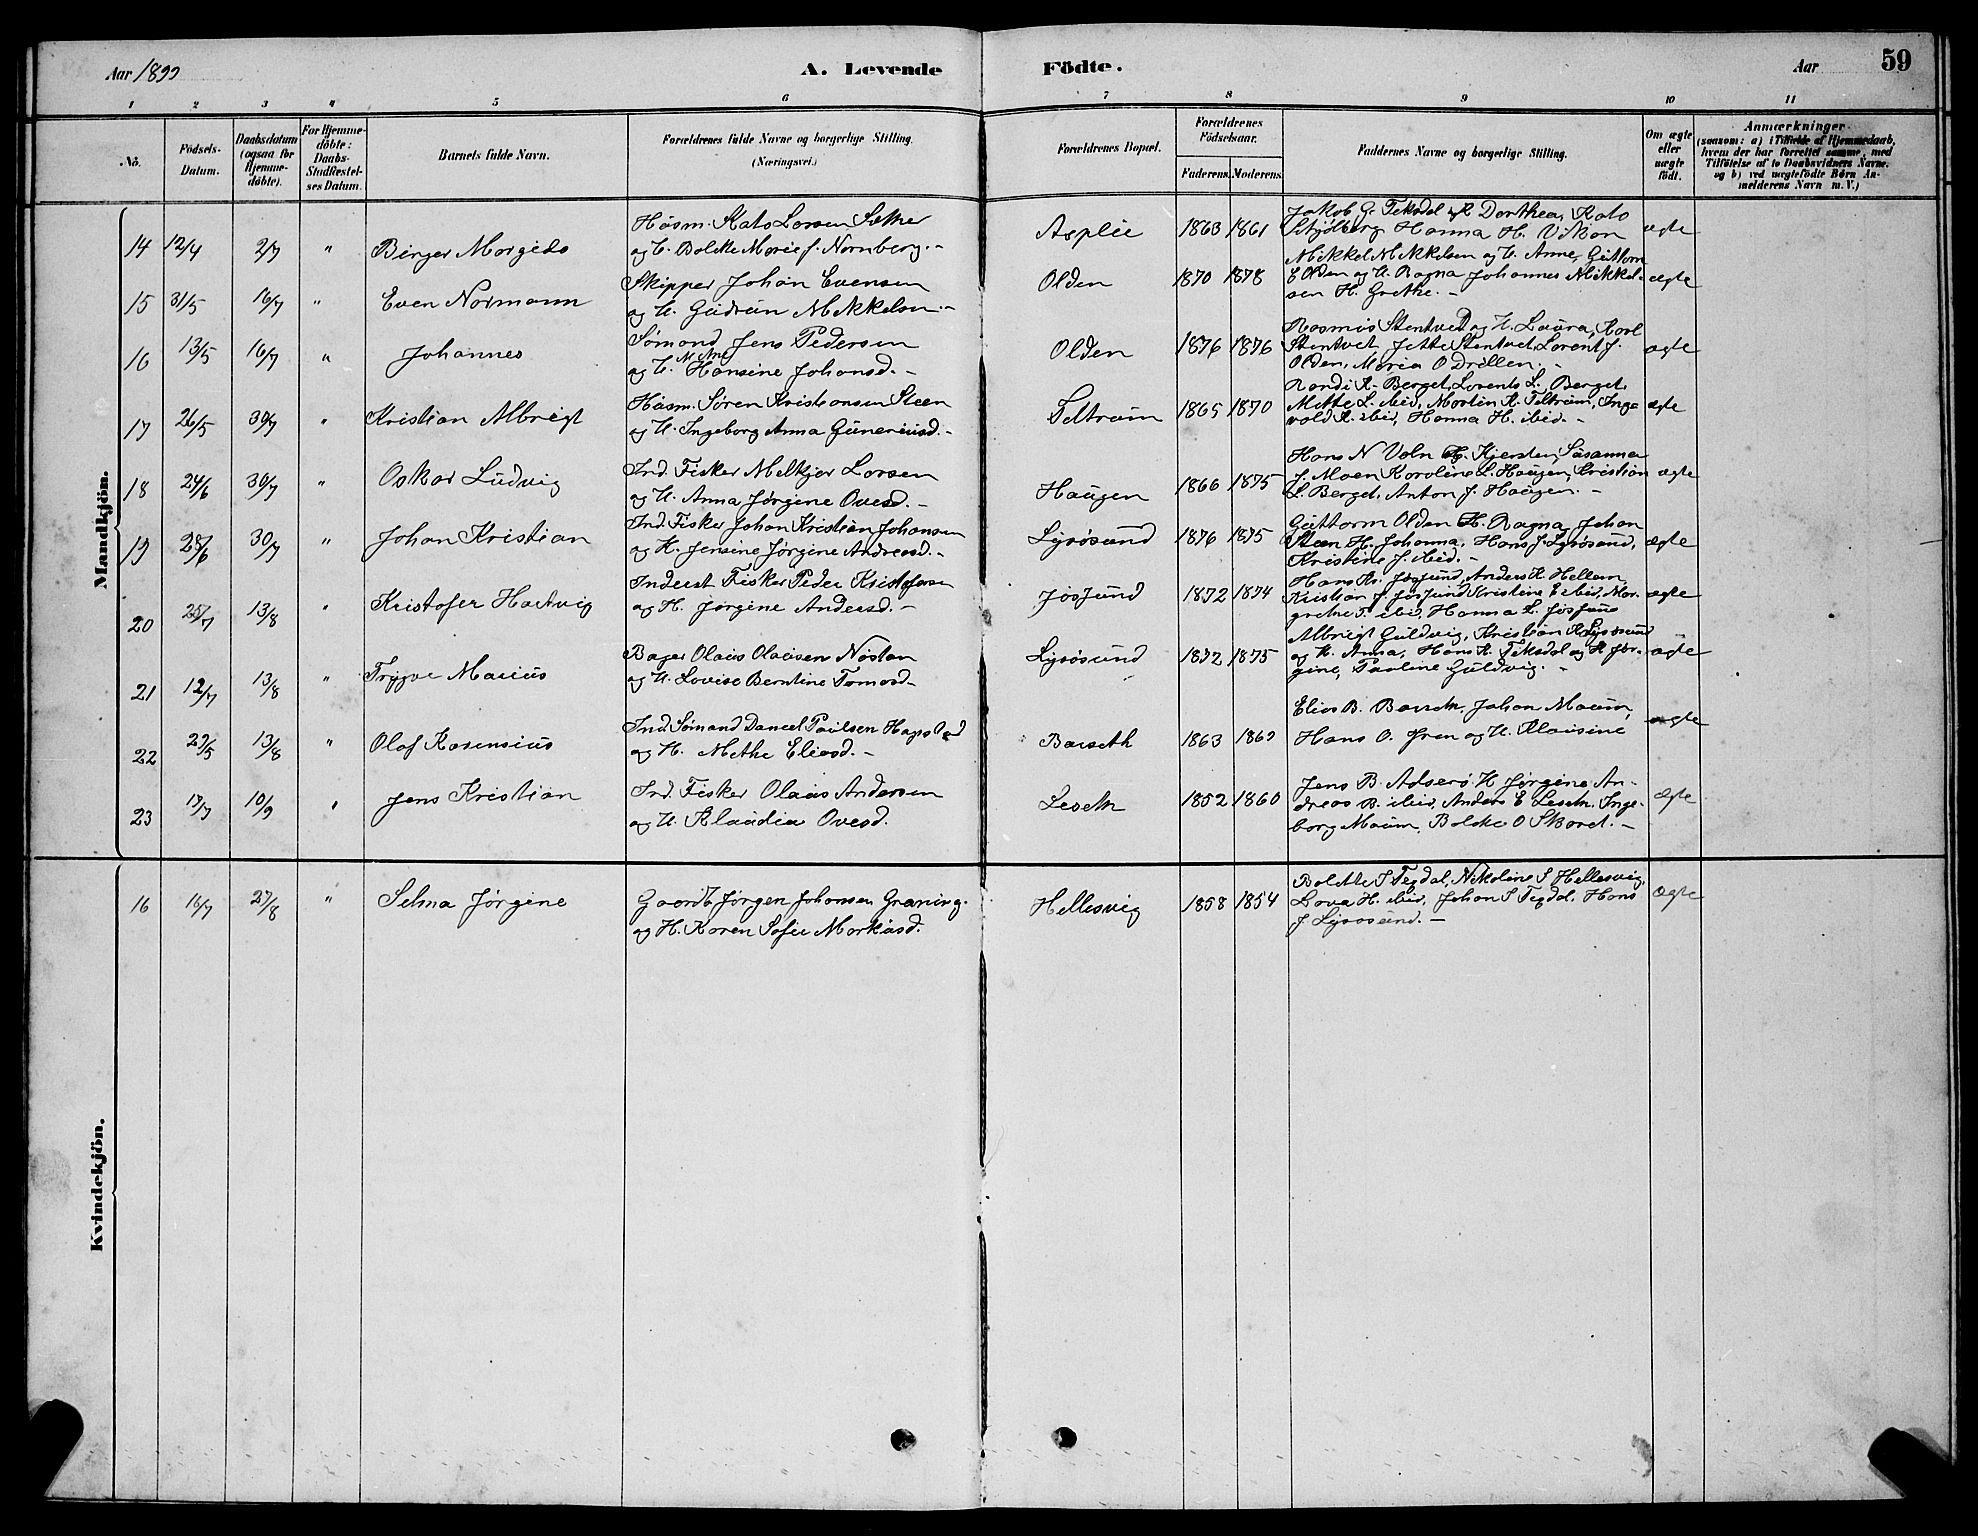 Aar 1899 A. Levende Födte. Aar 59
1 2 3 4 5 6 7 8 9 10 11
No. Födsels-Datum. Daabsdatum (ogsaa for Hjemme-döbte). For Hjemme-döbte: Daabs-Stadfæstel-ses Datum. Barnets fulde Navn. Forældrenes fulde Navne og borgerlige Stilling. (Næringsvei.) Forældrenes Bopæl. Forældrenes Födselsaar. Faderens. Moderens. Faddernes Navne og borgerlige Stilling. Om ægte eller uægte födt. Anmærkninger.
(saasom: a) i Tilfælde af Hjemmedaab,
hvem der har forrettet samme, med
Tilföielse af to Daabsvidners Navne.
og b) ved uægtefödte Börn An-
melderens Navn m. V.)
Mandkjön.
14 12/4 2/7 " Birger Morgido
Husm. Kato Larsen Sæther
og H. Bolette Marie J. Nornberg. -
Asplie 1863 1861
Jakob G. Teksdal, Dorthea, Kato
Hanna H. Vikan
ægte
15 31/5 16/7 " Even Normann
Skipper Johan Evensen
og H. Gudrun Mikkelsen. -
Olden 1870 1878
Mikkel Mikkelsen og H. Anne, Guttorm
E Olden og H. Ragna Johannes Mikkel-
sen H. Grethe. -
ægte
16 13/5 16/7 " Johannes
Sømand Jens Pedersen
og H. Hansine Johansd. -
Olden 1876 1876
Rasmus Stentvet og H. Laura, Karl
Stentvet, Jette Stentvet, Lorents J.
Olden, Maria O Drillen. -
ægte
17 26/5 30/7 " Kristian Albrigt
Husm. Søren Kristiansen Steen
og H. Ingeborg Anna Guneriusd. -
Teltrum 1865 1870
Randi K. Berget, Lorents L. Berget,
Mette L. ibid, Martin K. Teltrum, Inge
vald K. ibid, Hanna H. ibid. -
ægte
18 24/6 30/7 " Oskar Ludvig
Ind. Fisker Melkjor Larsen
og H. Anna Jørgine Ovesd. -
Haugen 1866 1875
Hans N Voln H. Kjersten, Susanna
J. Moen Karoline L. Haugen, Kristian
L. Berget, Anton J. Haugen. -
ægte
19 28/6 30/7 " Johan Kristian
Ind. Fisker Johan Kristian Johansen
og H. Jensine Jørgine Andreasd. -
Lysøsund 1876 1875
Guttorm Olden H. Ragna, Johan
Steen H. Johanna, Hans J. Lysøsund,
Kristine J. ibid. -
ægte
20 25/7 13/8 " Kristofer Hartvig
Inderst Fisker Peder Kristofersen
og H. Jørgine Andersd. -
Jøssund 1872 1874
Hans Kr. Jøssund, Anders K. Hellem,
Kristian J. Jøssund Kristine E ibid, Mar-
grethe P. ibid, Hanna L. Jøssund
ægte
21 12/7 13/8 " Trygve Marius
Bager Olaus Olausen Nøstan
og H. Lovise Berntine Tomasd. -
Lysøsund 1872 1875
Albrigt Guldvig, Kristian K Lysøsund
og H. Anna, Hans K. Teksdal og H. Jør-
gine, Pauline Guldvig. -
ægte
22 29/5 13/8 " Olaf Rasensius
Ind. Sømand Daniel Paulsen Hagstad
og H. Methe Eliasd. -
Barseth 1863 1869
Elias B. Barseth, Johan Maum,
Hans O. Gren og H. Klausine
ægte
23 19/7 10/9 " Jens Kristian
Ind. Fisker Olaus Andersen
og H. Klaudia Ovesd.
Leseth 1852 1860
Jens B. Adserø H Jørgine An-
dreas B. ibid, Anders E Leseth, Inge-
borg Maum, Bolette O Skaret. -
ægte
Kvindekjön.
16 16/7 27/8 " Selma Jørgine
Gaardb Jørgen Johansen Graning.
og H. Karen Sofie Markusd.
Hellesvig 1858 1854
Bolette S Tegdal, Nikoline S Hellesvig,
Lova H. ibid, Johan S Tegdal, Hans
J Lysøsund. -
ægte